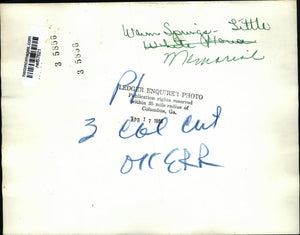 Warm Springs - Little
White House
Memorial
35866
35866
P1
LEDGER ENQUIRER PHOTO
Publication rights reserved
within 35 mile radius of
Columbus, Ga.
APR 17
3 Col Cut